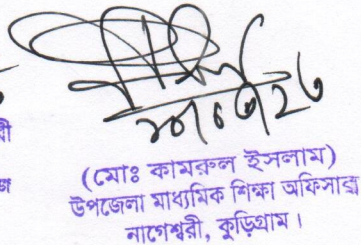 (মোঃ কামরুল ইসলাম)
উপজেলা মাধ্যমিক শিক্ষা অফিসার
নাগেশ্বরী, কুড়িগ্রাম।